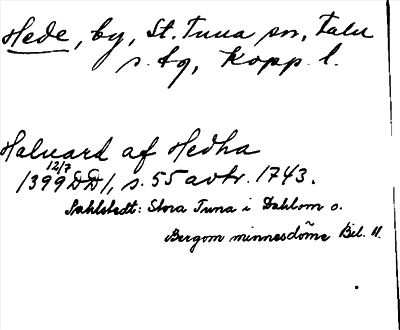 Hede, by, St. Tuna sn, Falu
s. tg, Kopp. l.
Haluard af Hedha
12/7
1399 DD 1, s. 55 avtr. 1743.
Sahlstedt: Stora Tuna i Dahlom o.
Bergom minnesdöme Bil. 11.